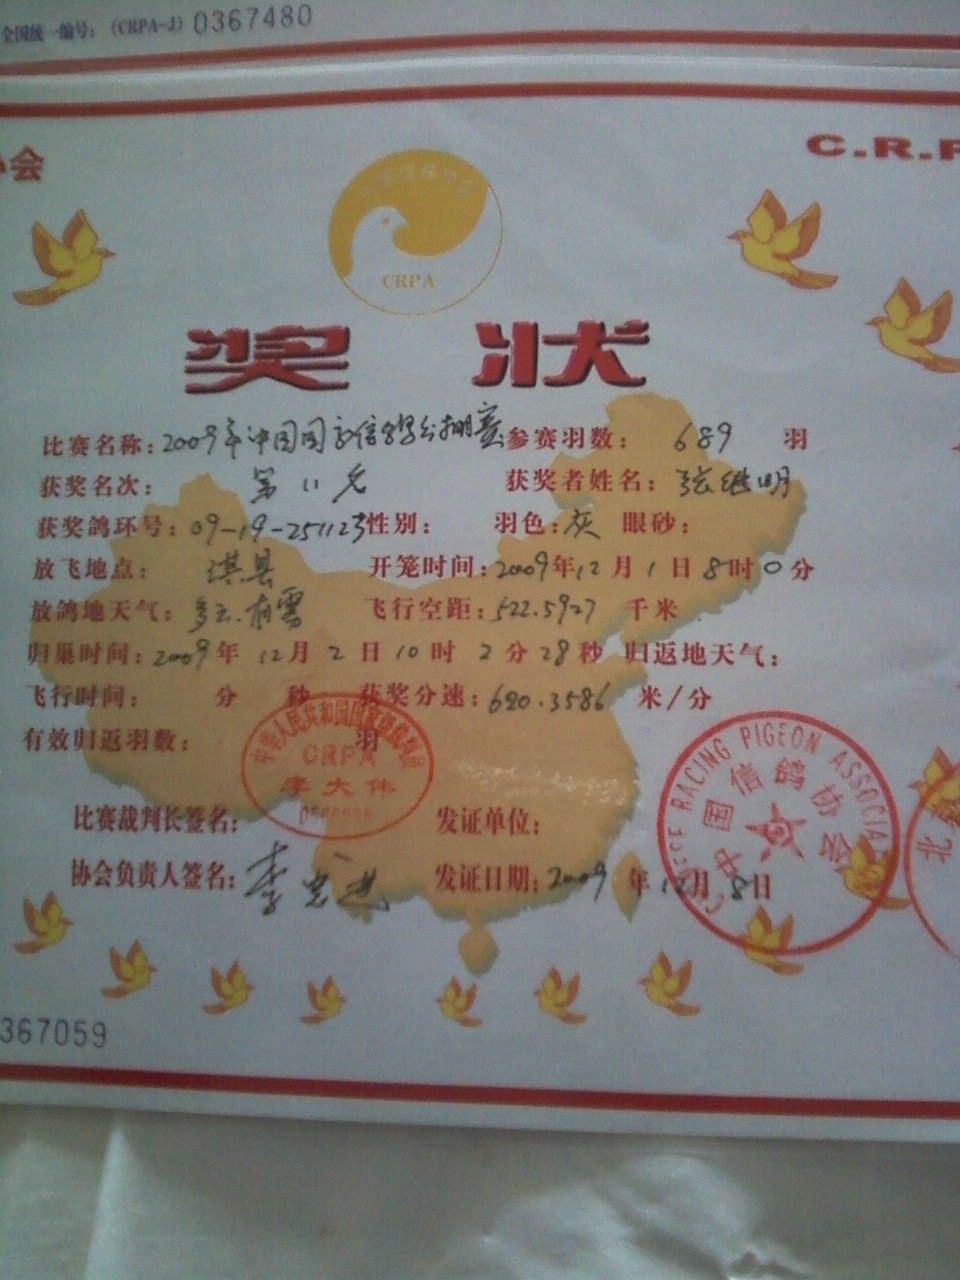 全国统一编号：（CRPA-J）0367480
协会
C.R.P
CRPA
奖 状
比赛名称：2009年中国国家信鸽公棚赛 参赛羽数：689 羽
获奖名次：第11名 获奖者姓名：张继明
获奖鸽环号：09-19-251123 性别： 羽色：灰 眼砂：
放飞地点：淇县 开笼时间：2009年12月1日8时0分
放鸽地天气：多云.有雾 飞行空距：522.5927 千米
归巢时间：2009年12月2日10时2分28秒 归返地天气：
飞行时间： 分 秒 获奖分速：620.3586 米/分
有效归返羽数： 羽
中华人民共和国国家级裁判员
CRPA
李大伟
比赛裁判长签名： 发证单位：
协会负责人签名： 发证日期：2009年12月8日
RACING PIGEON ASSOCIAT
中国信鸽协会
北
367059